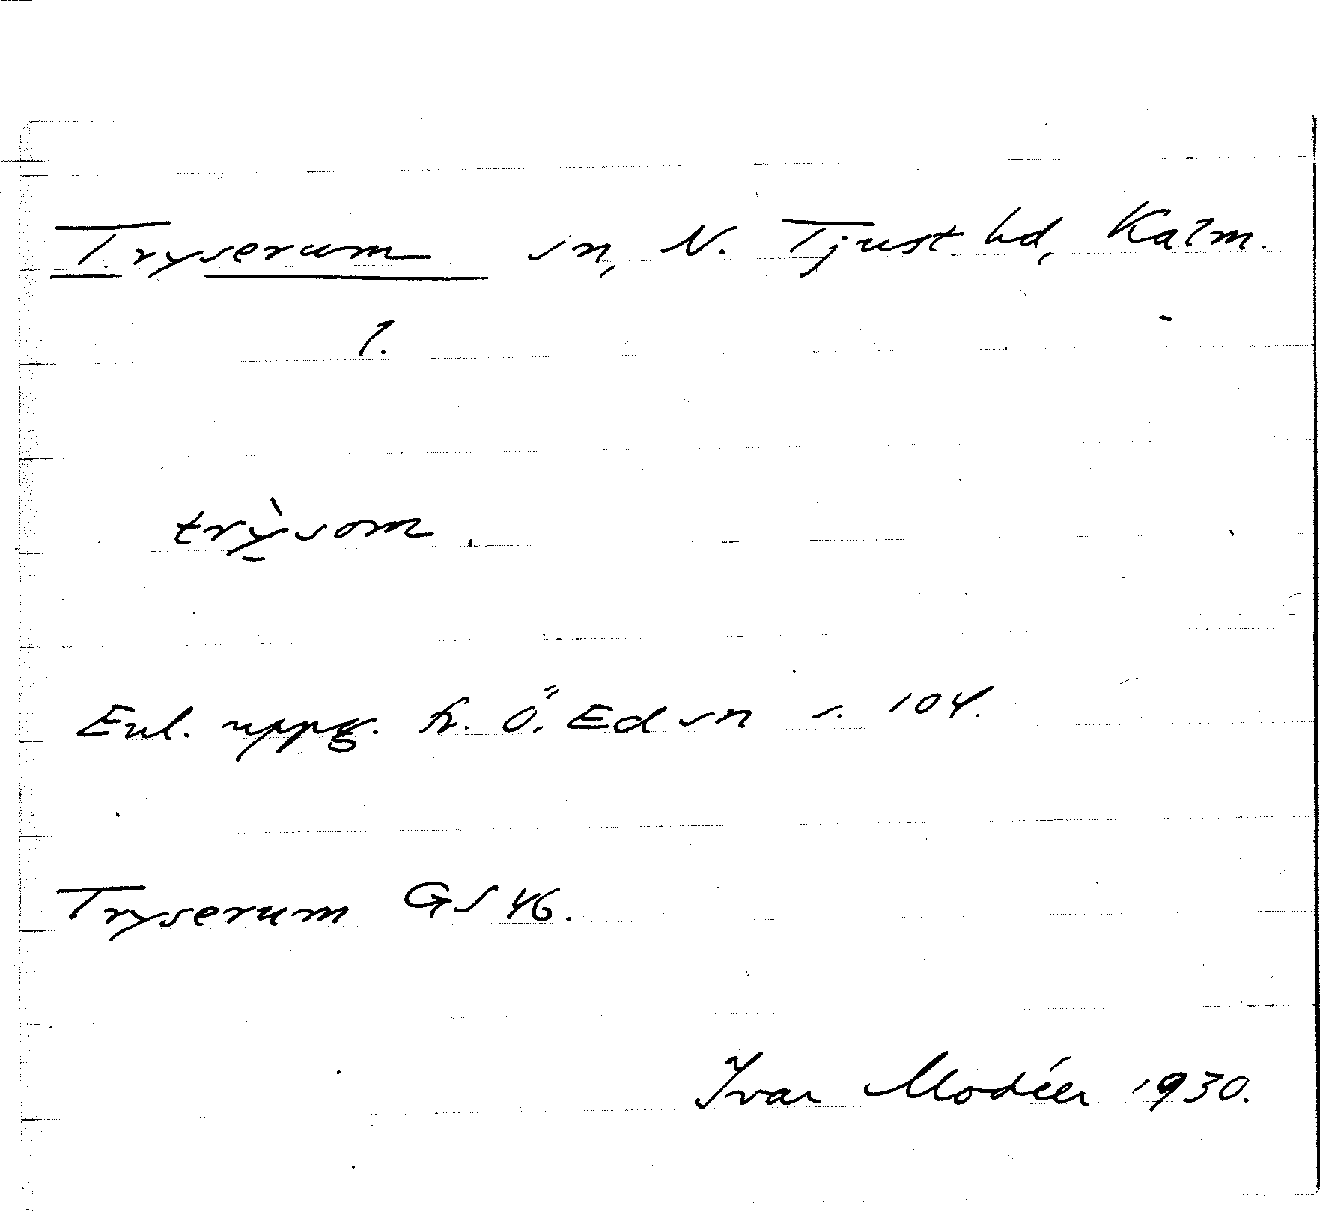 Tryserum sn, N. Tjust hd, Kalm.
l.
trỳsom.
Enl. uppg. fr. Ö. Ed sn s. 104.
Tryserum GS 46.
Ivar Modéer 1930.